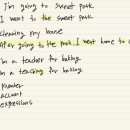 I'm going to sweet park
I went to the sweet park.
cleaning my house
After going to the park, I went home to
I'm a teacher for baking.
I'm a teaching for baking.
Plumber
accent
expressions